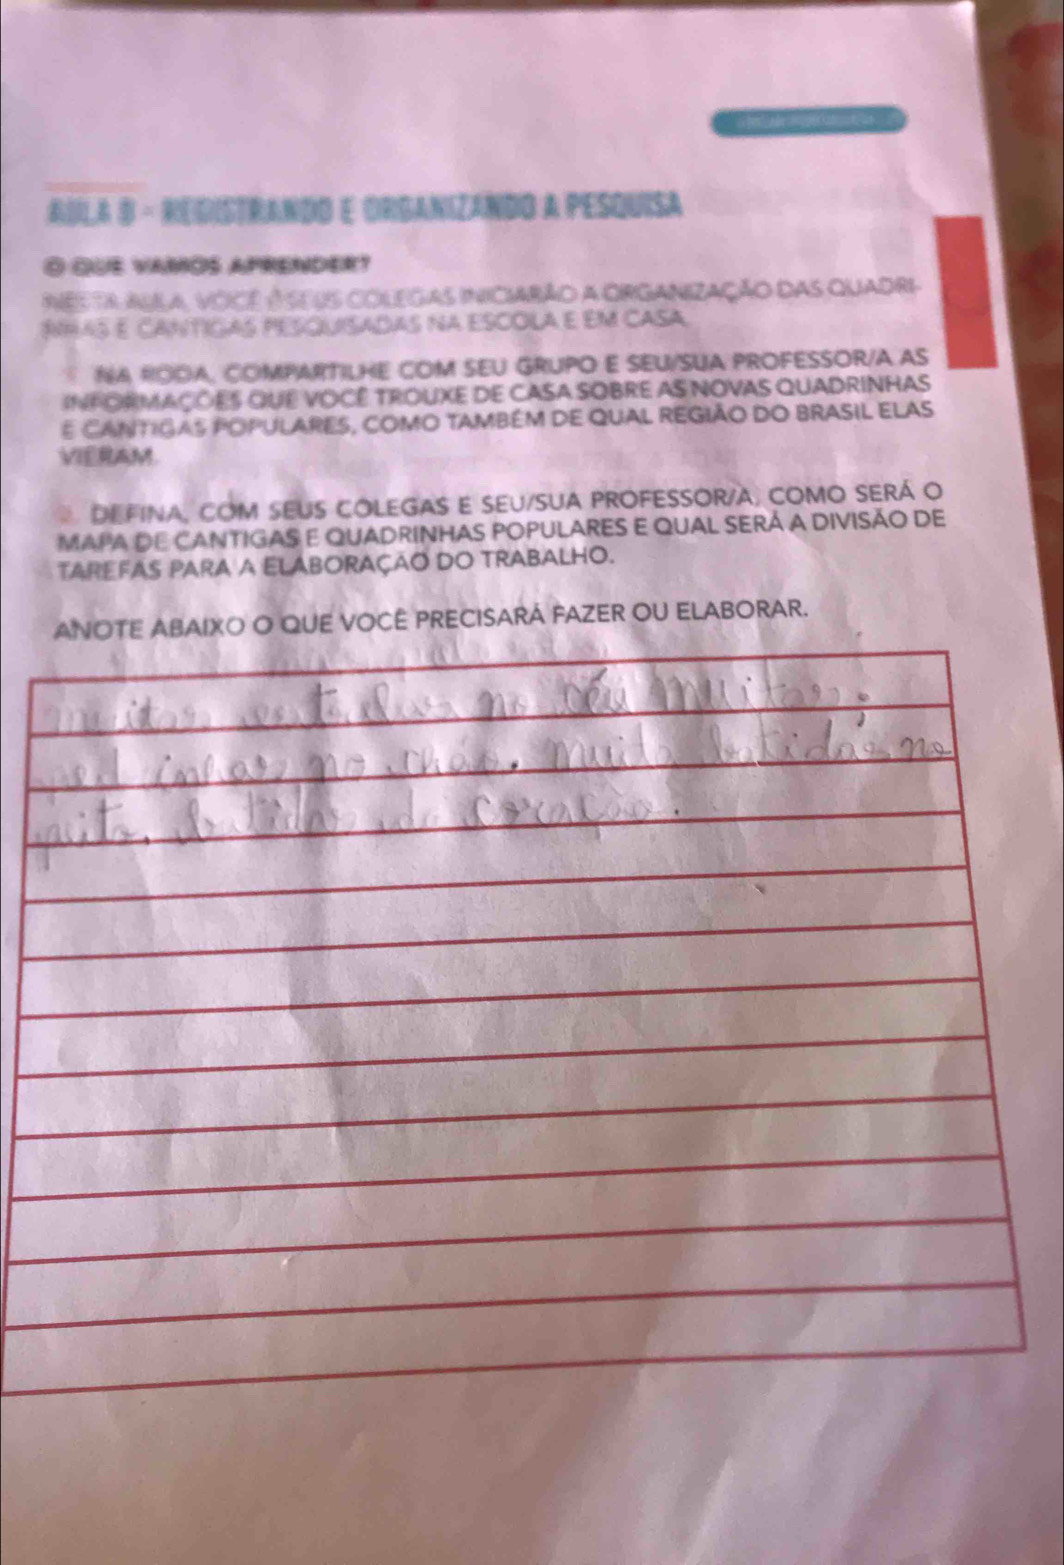 AULA 8 - REGISTRANDO E ORGANIZANDO A PESQUISA
O QUE VAMOS APRENDER?
NESTA AULA, VOCÊ E SEUS COLEGAS INICIARÃO A ORGANIZAÇÃO DAS QUADRI-
NHAS E CANTIGAS PESQUISADAS NA ESCOLA E EM CASA.
NA RODA, COMPARTILHE COM SEU GRUPO E SEU/SUA PROFESSOR/A AS
INFORMAÇÕES QUE VOCÊ TROUXE DE CASA SOBRE AS NOVAS QUADRINHAS
E CANTIGAS POPULARES, COMO TAMBÉM DE QUAL REGIÃO DO BRASIL ELAS
VIERAM.
2. DEFINA, COM SEUS COLEGAS E SEU/SUA PROFESSOR/A, COMO SERÁ O
MAPA DE CANTIGAS E QUADRINHAS POPULARES E QUAL SERÁ A DIVISÃO DE
TAREFAS PARA A ELABORAÇÃO DO TRABALHO.
ANOTE ABAIXO O QUE VOCÊ PRECISARÁ FAZER OU ELABORAR.
muitas no céu muitas
no chão. muita batidas no
peito, batidas do coração.